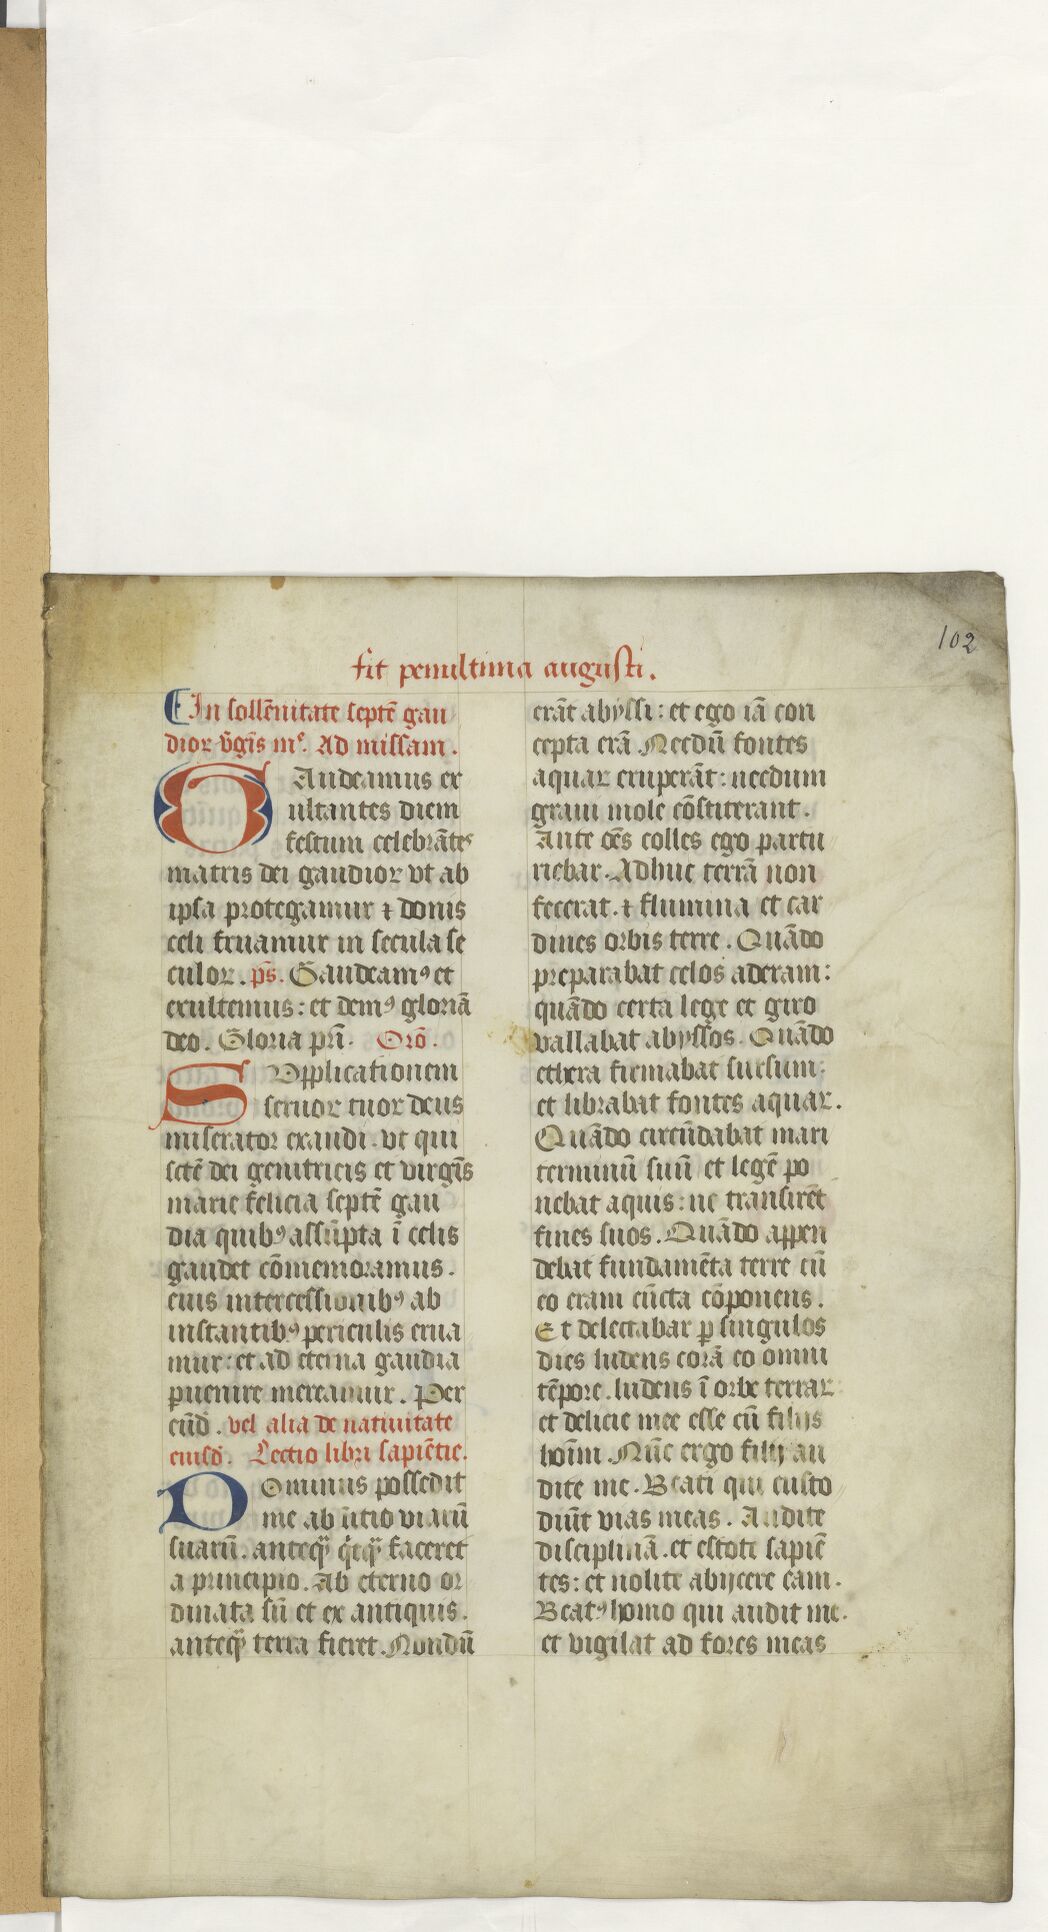 102
fit penultima augusti.
In sollēnitate septē gau
dioꝝ v̄gīs mᵉ. Ad missam.
GAudeamus ex
ultantes diem
festum celebrātes
matris dei gaudioꝝ vt ab
ipsa protegamur ⁊ donis
celi fruamur in secula se
culoꝝ. ps̄. Gaudeamꝰ et
exultemus: et demꝰ gloriā
deo. Gloria pr̄i. Orō.
SVpplicationem
seruoꝝ tuoꝝ deus
miserator exaudi. vt qui
sctē dei genitricis et virgīs
marie felicia septē gau
dia quibꝰ assūpta ī celis
gaudet cōmemoramus.
eius intercessionibꝰ ab
instantibꝰ periculis erua
mur: et ad eterna gaudia
ꝑuenire mereamur. Per
eūd̄. vel alia de natiuitate
eiusd̄. Lectio libri sapiētie.
DOminus possedit
me ab īitio viarū
suarū. anteꝙ̄ q̇cꝙ̄ faceret
a principio. Ab eterno or
dinata sū et ex antiquis.
anteꝙ̄ terra fieret. Nondū
erāt abyssi: et ego iā con
cepta erā. Necdū fontes
aquaꝝ eruperāt: necdum
graui mole cōstiterant.
Ante oēs colles ego partu
riebar. Adhuc terrā non
fecerat. ⁊ flumina et car
dines orbis terre. Quādo
preparabat celos aderam:
quādo certa lege et giro
vallabat abyssos. Quādo
ethera firmabat sursum:
et librabat fontes aquaꝝ.
Quādo circūdabat mari
terminū suū et legē po
nebat aquis: ne transirēt
fines suos. Quādo appen
debat fundamēta terre cū
eo eram cūcta cōponens.
Et delectabar ꝑ singulos
dies ludens corā eo omni
tēpore. ludens ī orbe terraꝝ
et delicie mee esse cū filijs
hoīm. Nūc ergo filij au
dite me. Beati qui custo
diūt vias meas. Audite
disciplinā. et estote sapiē
tes: et nolite abijcere eam.
Beatꝰ homo qui audit me.
et vigilat ad fores meas